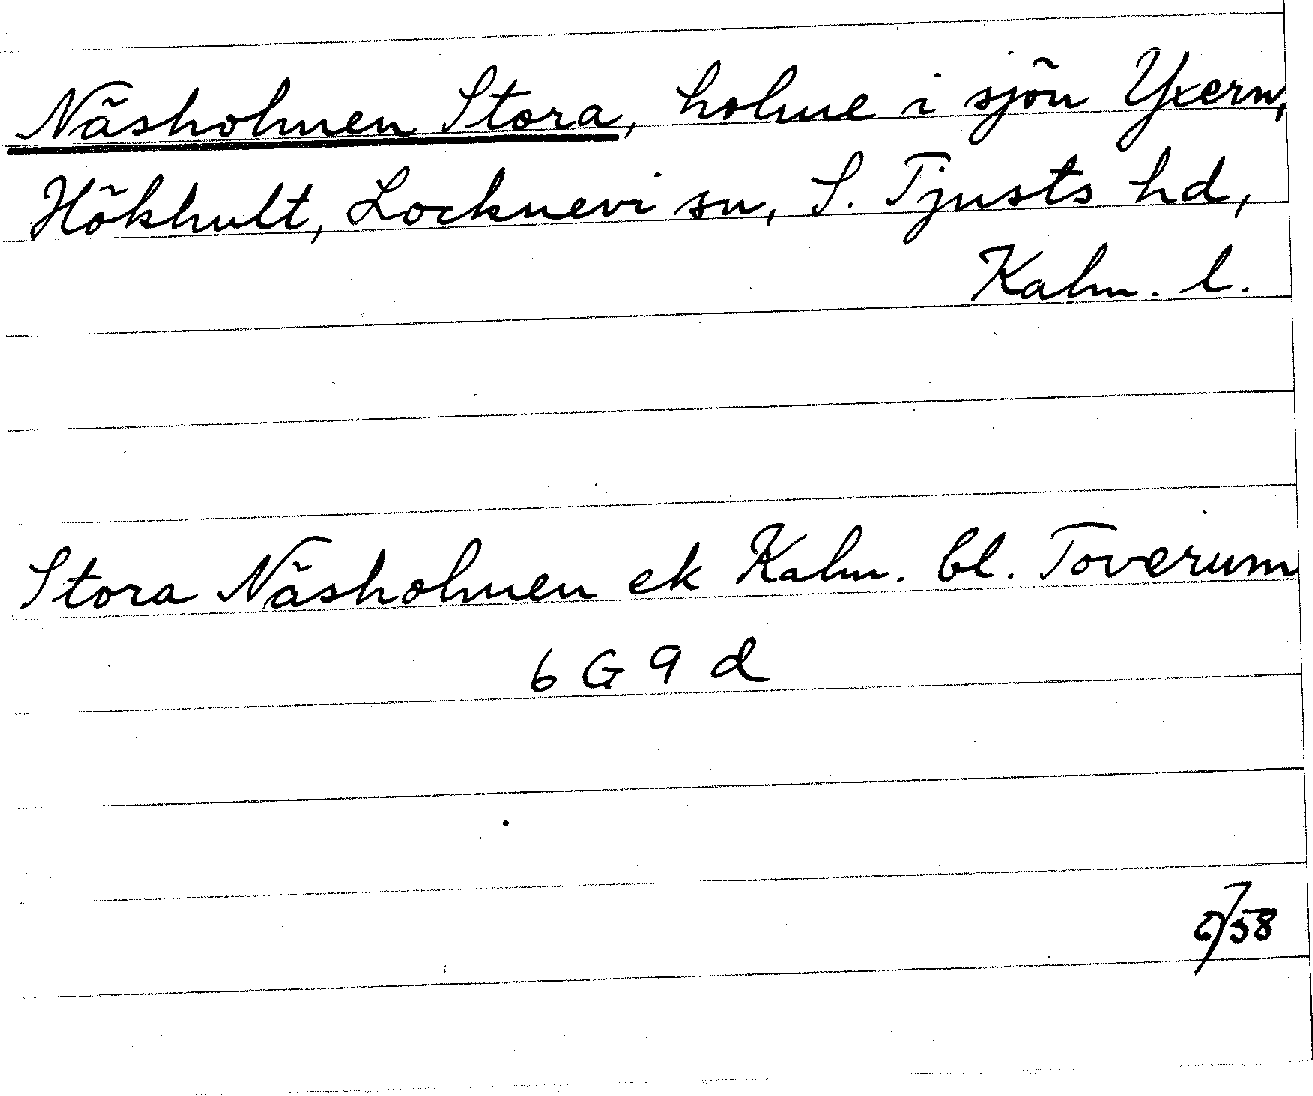 Näsholmen Stora, holme i sjön Yxern,
Hökhult, Locknevi sn, S. Tjusts hd,
Kalm. l.
Stora Näsholmen ek Kalm. bl. Toverum
6 G 9 d
/58